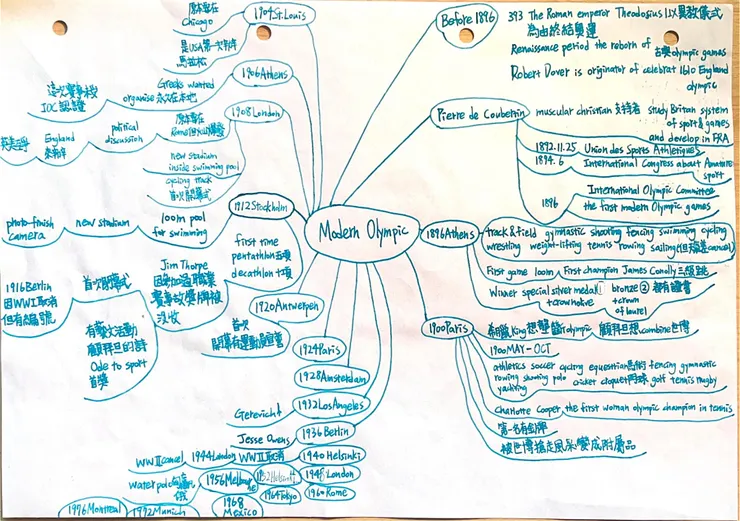 Modern Olympic
Before 1896
393 The Roman emperor Theodosius I 以異教儀式
為由終結奧運
Renaissance period the reborn of 古奧 olympic games
Robert Dover is originator of celebrat 1610 England
olympic
Pierre de Coubertin
muscular christian 支持者 study Britan system
of sport & games
and develop in FRA
1892.11.25 Union des Sports Athletiques
1894.6 International Congress about Amature
sport
1896
International Olympic Committee
the first modern Olympic games
1896 Athens
track & field gymnastic shooting fencing swimming cycling
wrestling weight-lifting tennis rowing sailing (cancel)
First game 100m First champion James Conolly 三級跳
Winner special silver medal ①
+ crown olive
bronze ② 都有證書
+ crown
of laurel
1900 Paris
希臘 king 想 olympic 顧拜旦想 combine 世博
1900 MAY-OCT
athletics soccer cycling equestrian 馬術 fencing gymnastic
rowing shooting polo cricket croquet golf tennis rugby
yachting
Charlotte Cooper the first woman olympic champion in tennis
第一名有金牌
被世博搶走風采變成附屬品
1904 St. Louis
原本要在
Chicago
是USA第一次
馬拉松
1906 Athens
Greeks wanted
organise 永久在本地
這次賽事
IOC 認證
1908 London
原本要在
Rome 但火山爆發
political
discussion
England
new stadium
inside swimming pool
cycling track
首次開幕式
1912 Stockholm
100m pool
for swimming
new stadium
photo-finish
camera
first time
pentathlon 五項
decathlon 十項
Jim Thorpe
因參加過職業
賽事故獎牌被
沒收
首次閉幕式
有藝文活動
顧拜旦的詩
Ode to sport
首獎
1916 Berlin
因WWI取消
但有編號
1920 Antwerpen
首次
1924 Paris
1928 Amsterdam
1932 Los Angeles
Gerevich
1936 Berlin
Jesse Owens
1940 Helsinki
WWII 取消
1944 London
WWII cancel
1948 London
1952 Helsinki
1956 Melbourne
Water polo
1960 Rome
1964 Tokyo
1968
Mexico
1972 Munich
1976 Montreal